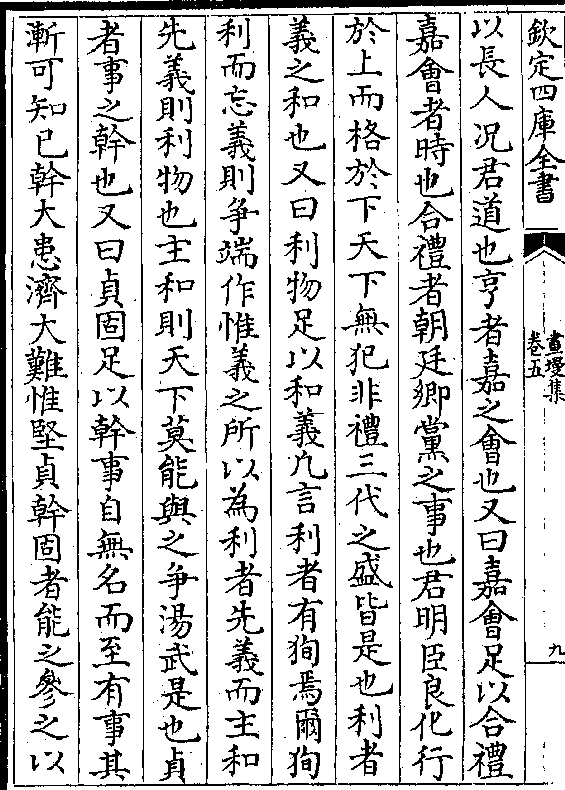 欽定四庫全書
畫墁集
卷五
九
以長人况君道也亨者嘉之會也又曰嘉會足以合禮
嘉會者時也合禮者朝廷鄉黨之事也君明臣良化行
於上而格於下天下無犯非禮三代之盛皆是也利者
義之和也又曰利物足以和義凡言利者有狥焉爾狥
利而忘義則争端作惟義之所以為利者先義而主和
先義則利物也主和則天下莫能與之争湯武是也貞
者事之幹也又曰貞固足以幹事自無名而至有事其
漸可知已幹大患濟大難惟堅貞幹固者能之參之以